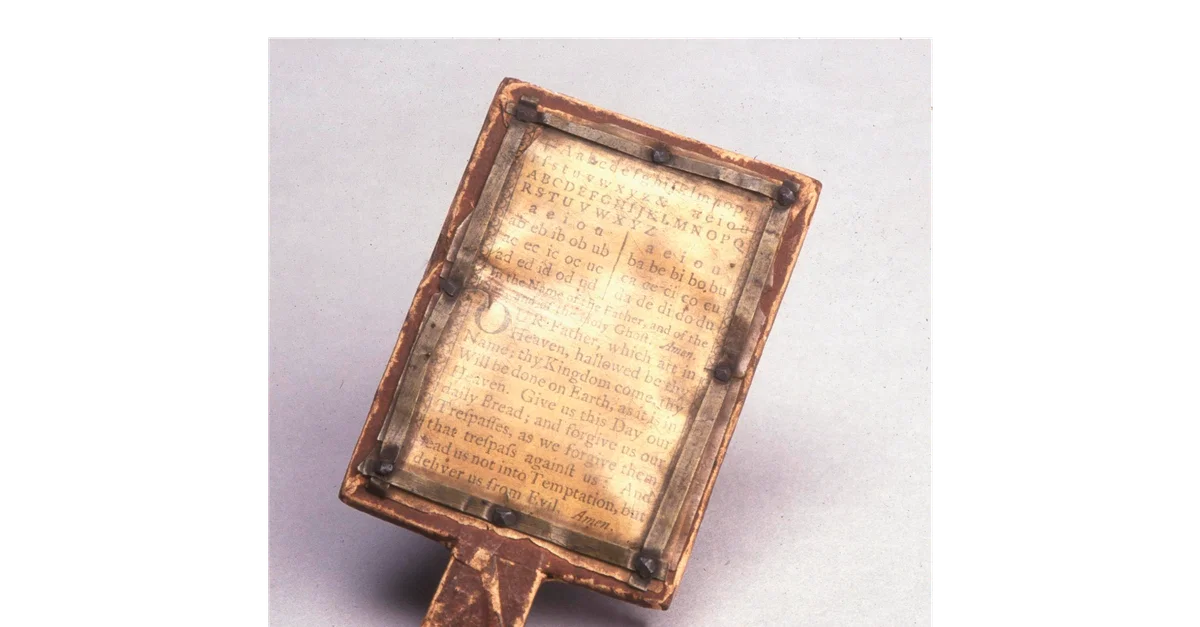 Aabcdefghijklmnopq
rſstuvwxyz& aeiou
ABCDEFGHIJKLMNOPQ
RSTUVWXYZ
a e i o u
a e i o u
ab eb ib ob ub
ba be bi bo bu
ac ec ic oc uc
ca ce ci co cu
ad ed id od ud
da de di do du
In the Name of the Father, and of the
and of the Holy Ghoſt. Amen.
OUR Father, which art in
Heaven, hallowed be thy
Name; thy Kingdom come, thy
Will be done on Earth, as it is in
Heaven. Give us this Day our
daily Bread; and forgive us our
Treſpaſſes, as we forgive them
that treſpaſs againſt us: And
lead us not into Temptation, but
deliver us from Evil. Amen.